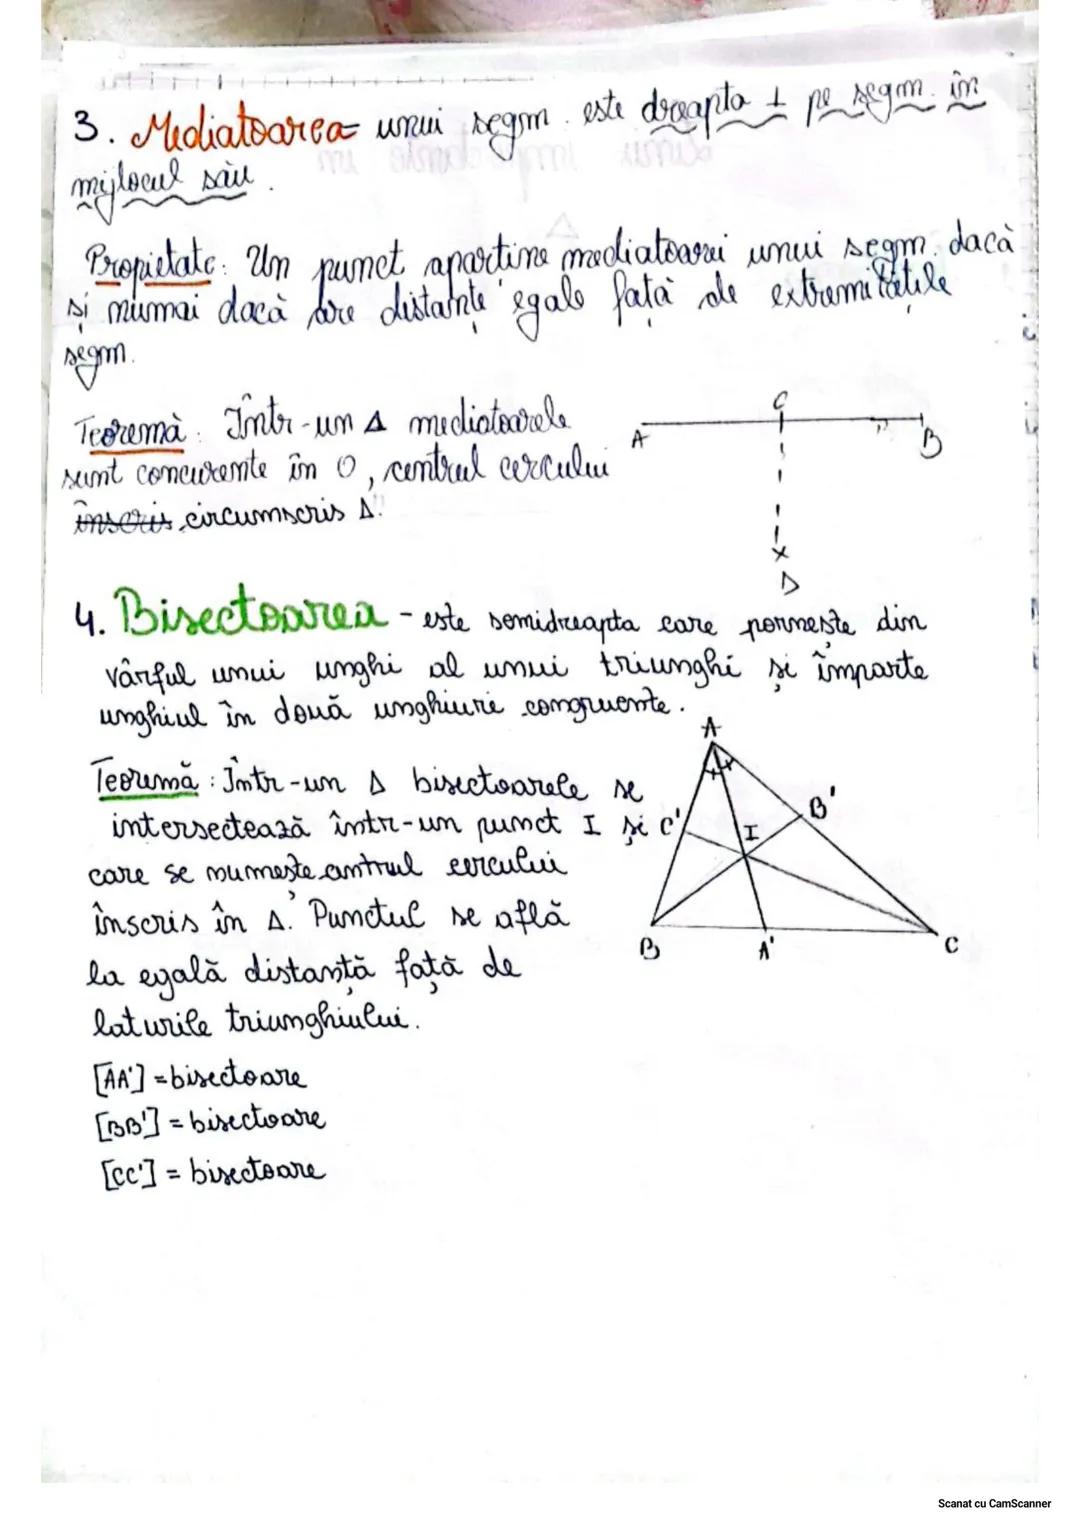 3. Mediatoarea unui segm. este dreapta ⊥ pe segm. în
mijlocul său.
Propietate: Un punct apartine mediatoarei unui segm. dacă
și numai dacă are distanțe egale față de extremitățile
segm.
Teoremă: Într-un Δ mediatoarele
sunt concurente în O, centrul cercului
înscris circumscris Δ.
A C B
D
4. Bisectoarea - este semidreapta care pornește din
vârful unui unghi al unui triunghi și împarte
unghiul în două unghiuri congruente.
Teoremă: Într-un Δ bisectoarele se
intersectează într-un punct I și
care se numește centrul cercului
înscris în Δ. Punctul se află
la egală distanță față de
laturile triunghiului.
A
B'
C'
I
B A' C
[AA'] = bisectoare
[BB'] = bisectoare
[CC'] = bisectoare
Scanat cu CamScanner